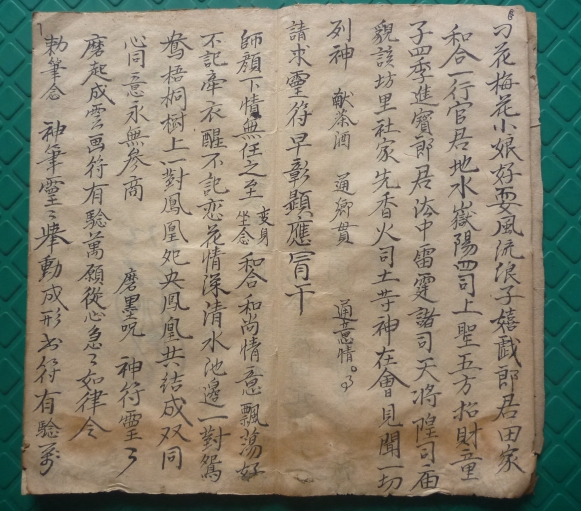 刁花梅花小娘好耍風流浪子嬉戲郎君田家
和合一行官君地水嶽陽四司上聖五方招財童
子四季進寳郎君法中雷霆諸司天將隍司庙
貌該坊里社家先香火司土等神在會見聞一切
列神 献茶酒 通鄉貫 通意情。
請求靈符早彰顯應冐干
師顔下情無任之至 变身坐念 和合和尚情意飄蕩好
不記牽衣醒不記恋花情深清水池邊一對鴛
鴦梧桐樹上一對鳳凰夗央鳳凰共结成双同
心同意永無參商 磨墨呪 神符靈々
磨起成雲画符有騐萬願從心急々如律令
勅筆念 神筆靈々舉動成形书符有騐萬